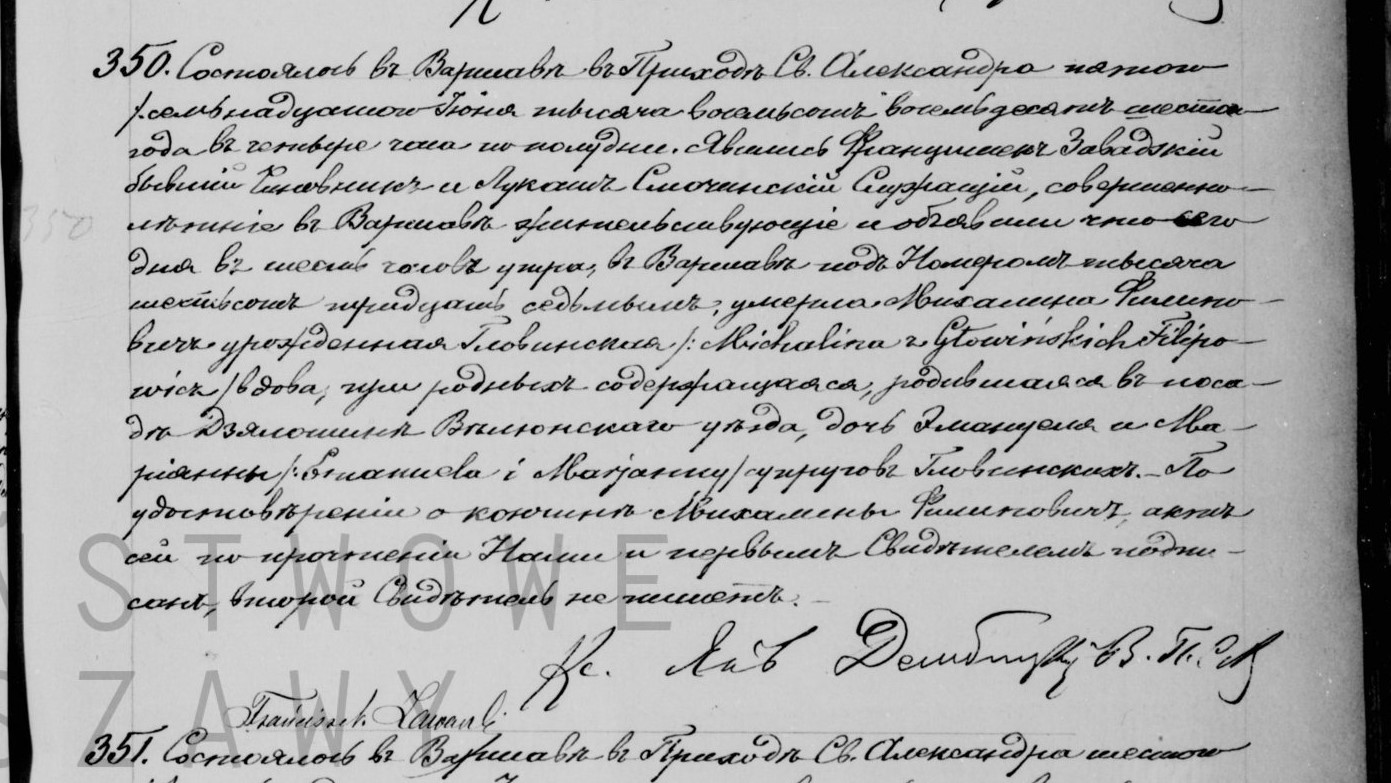 350. Состоялось въ Варшавѣ въ Приходѣ Св. Александра пятого
/:семьнадцатого Іюня тысяча восемьсотъ восемьдесятъ шестаго
года въ четыре часа по полудни. Явились Францишекъ Завадзкій
бывшій Чиновникъ и Лукашъ Смочинскій Служащій, совершенно-
лѣтніе въ Варшавѣ жительствующіе и объявили что сего
дня въ шесть часовъ утра, въ Варшавѣ подъ Номеромъ тысяча
шестьсотъ тридцать седьмымъ, умерла Михалина Филипо-
вичъ урожденная Гловинская /:Michalina z Głowińskich Filipo-
wicz/ вдова, при родныхъ содержащаяся, родившаяся въ поса-
дѣ Дзялошинѣ Вѣлюнскаго уѣзда, дочь Эмануеля и Ма-
ріанны /:Emanuela i Marjanny/ супруговъ Гловинскихъ. - По
удостовѣреніи о кончинѣ Михалины Филиповичъ, актъ
сей по прочтеніи Нами и первымъ Свидѣтелемъ подпи-
санъ, второй Свидѣтель не пишетъ. -
Кс. Янъ В. П.
Franciszek Zawadzki
351. Состоялось въ Варшавѣ въ Приходѣ Св. Александра шестого
STWOWE
SZAWY
350